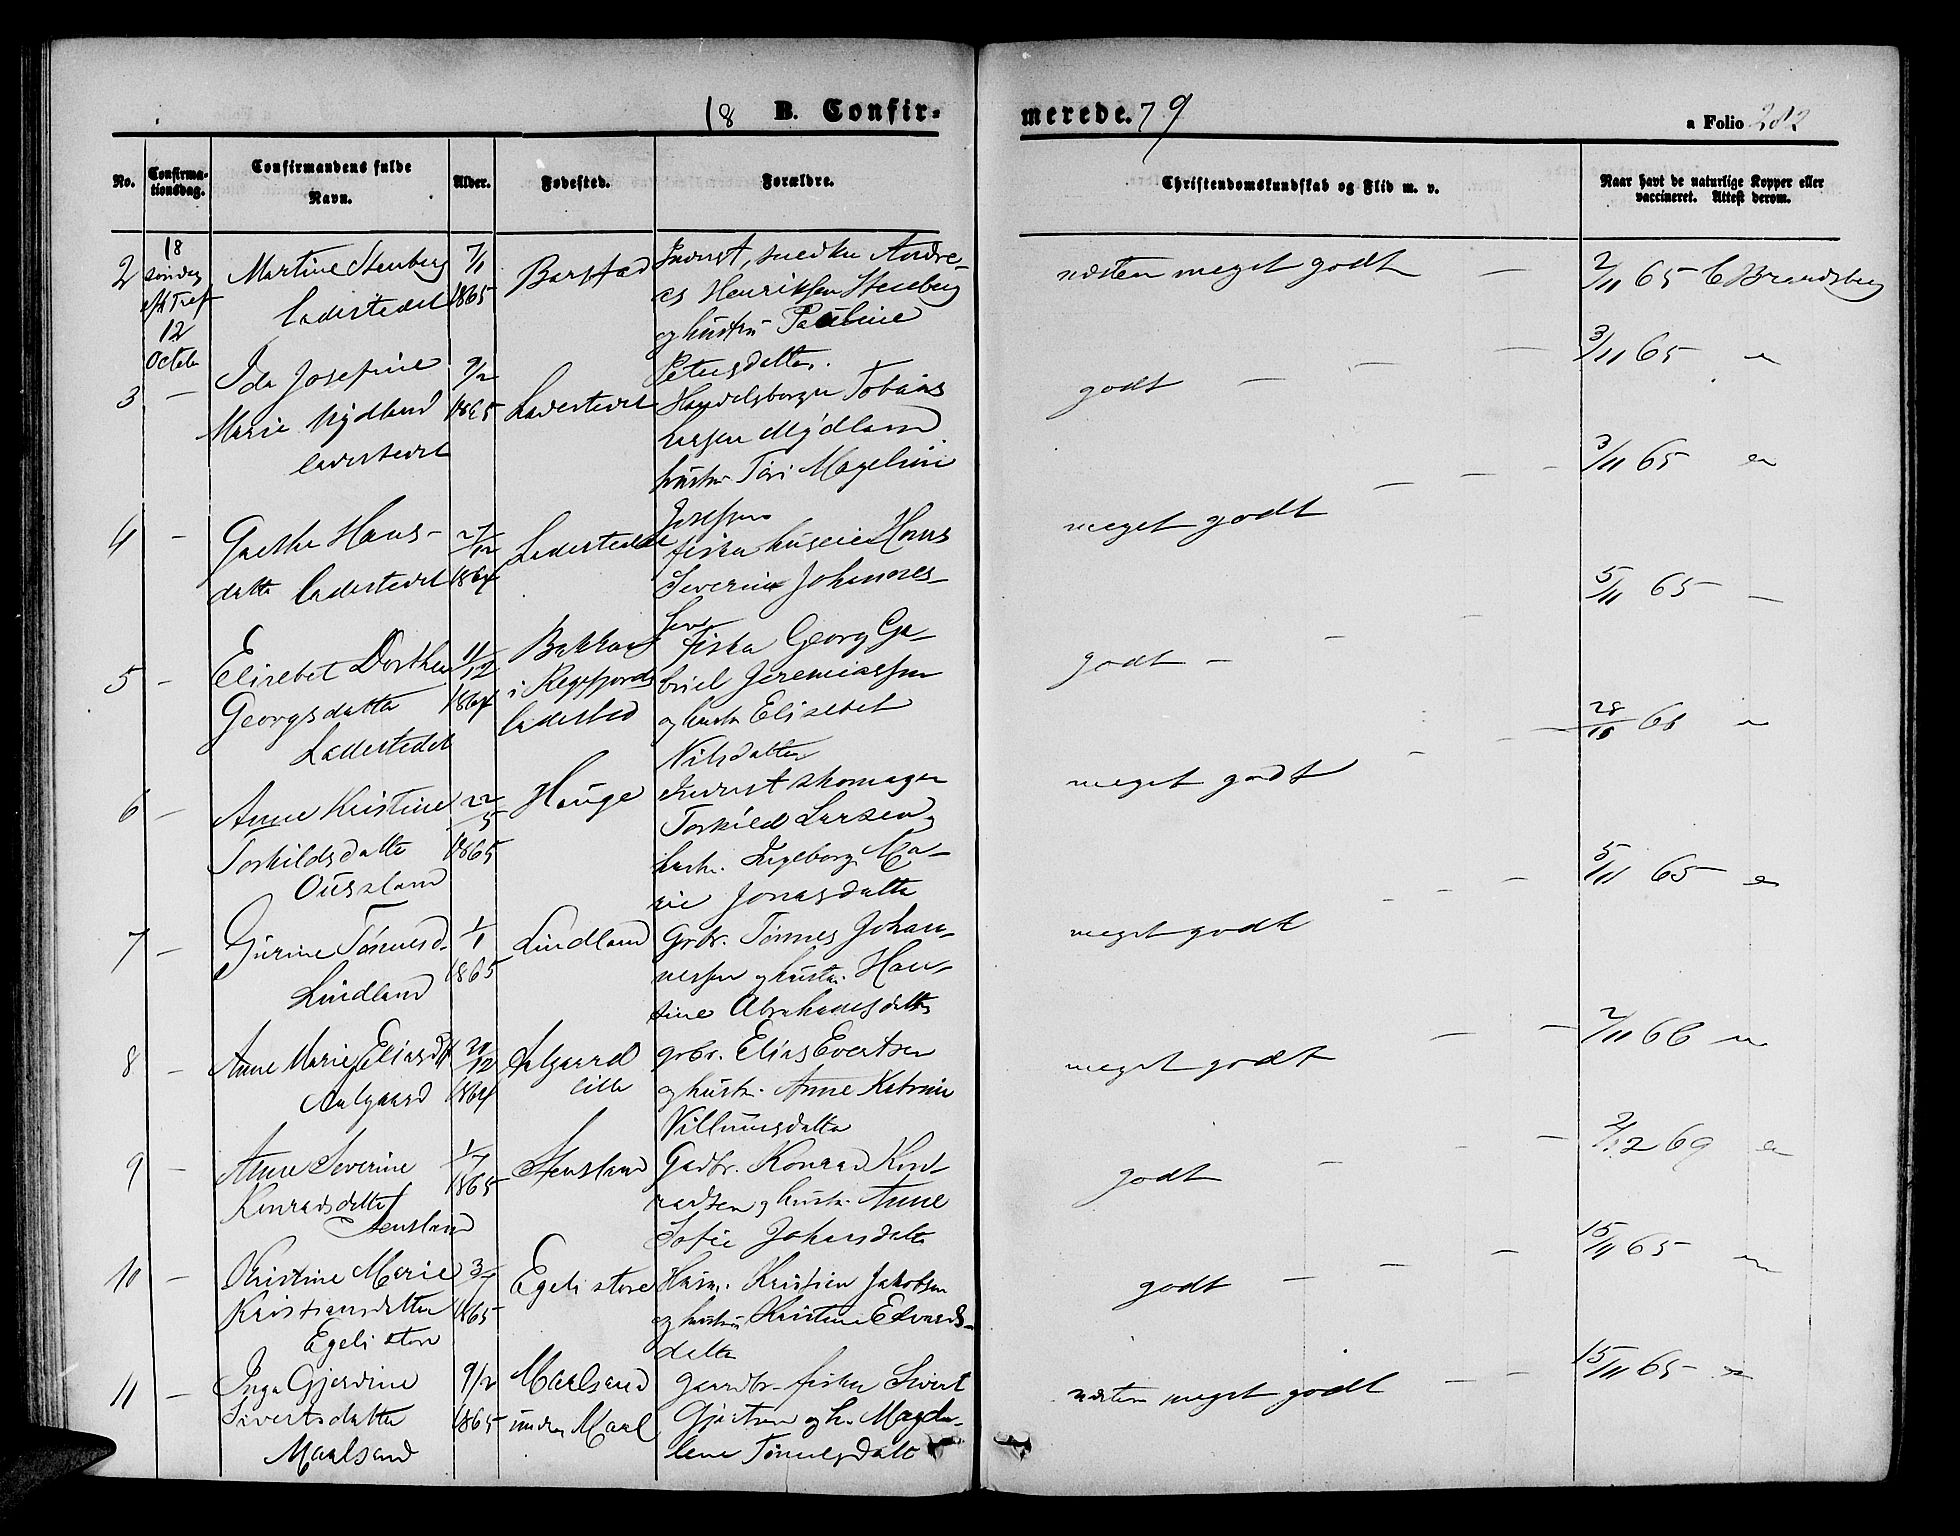 18 B. Confir-
merede. 79
a Folio 282
No.
Confirma-
tionsdag.
Confirmandens fulde
Navn.
Alder.
Fødested.
Forældre.
Christendomskundskab og Flid m. v.
Naar havt de naturlige Kopper eller
vaccineret. Attest derom.
2
18
søndag
eft Tref
12
Octob
Martine Stenberg
Ladestedet
7/1
1865
Barstad
Inderst, snedker Andre-
as Henriksen Stenberg
og hustru Pauline
Petersdatter.
næsten meget godt —
2/11 65 C Brandsberg
3 —
Ida Josefine
Marie Mydland
Ladestedet
9/2
1865
Ladestedet
Handelsborger Tobias
Larsen Mydland
hustr. Tori Magelini
Josefsen
godt — — —
3/11 65 "
4 —
Grethe Hans-
datter Ladestedet
27/12
1864
Ladestedet
fisker huseier Hans
Severin Johannes-
sen
meget godt — — —
3/11 65 "
5 —
Elisebet Dorthea
Georgsdatter
Ladestedet
11/12
1864
Bakkaas
i Regefjords
ladested
Fisker Georg Ga-
briel Jeremiassen
og hustr Elisebet
Nilsdatter
godt — —
5/11 65 —
6 —
Anne Kristine
Torkildsdatter
Ousland
22/5
1865
Hauge
Inderst skomager
Torkild Larsen og
hustr. Ingeborg Ma-
rie Jonasdatter
meget godt — —
28/10 65 "
7 —
Gurine Tønnesd.
Lindland
1/1
1865
Lindland
Grbr. Tønnes Johan-
nessen og hustr. Han-
sine Abrahamsdatter
meget godt — —
5/11 65 "
8 —
Anne Marie Eliasdtr
Aalgaard
20/12
1864
Aalgaard
lille
grbr. Elias Evertsen
og hustr. Anne Katrine
Villumsdatter
meget godt — —
2/11 66 "
9 —
Anne Severine
Konradsdatter
Stensland
1/7
1865
Stensland
Gaadbr. Konrad Kon-
radsen og hustr. Anne
Sofie Johansdatter
godt — — —
2/12 69 "
10 —
Kristine Marie
Kristiansdatter
Egeli store
3/7
1865
Egeli store
Husm. Kristien Jakobsen
og hustru Kristine Edvards-
datter
godt — — —
15/11 65 "
11 —
Inga Gjerdine
Sivertsdatter
Maalsand
9/2
1865
Maalsand
under Maal
gaardbr. fisker Sivert
Gjertsen og h. Magda-
lene Tønnesdatt
næsten meget godt — —
15/11 65 "